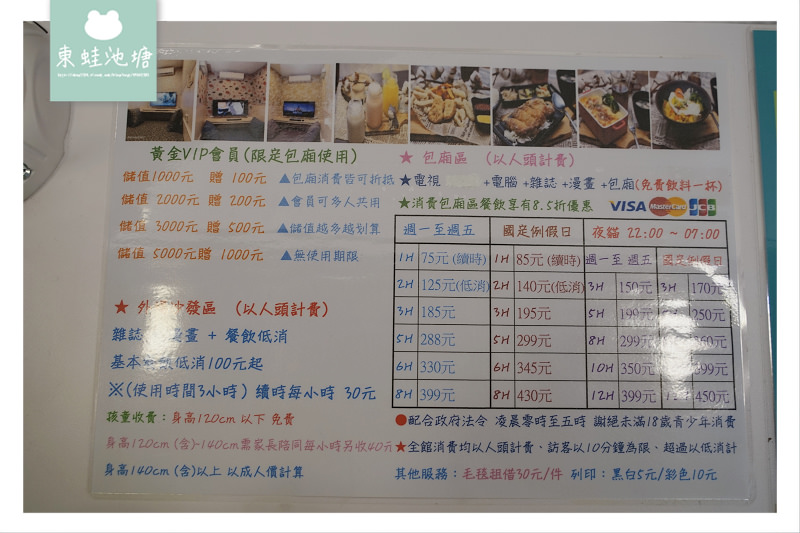 東蛙池塘
黃金VIP會員(限定包廂使用)
儲值1000元 贈 100元 ▲包廂消費皆可折抵
儲值 2000元 贈 200元 ▲會員可多人共用
儲值 3000元 贈 500元 ▲儲值越多越划算
儲值 5000元贈 1000元 ▲無使用期限
★ 沙發區 (以人頭計費)
雜誌 畫 + 餐飲低消
基本 低消100元起
※(使用時間3小時) 續時每小時 30元
孩童收費:身高120cm 以下 免費
身高120cm (含)-140cm需家長陪同每小時另收40元
身高140cm (含)以上 以成人價計算
★ 包廂區 (以人頭計費)
★電視 +電腦 +雜誌 +漫畫 +包廂(免費飲料一杯)
★消費包廂區餐飲享有8.5折優惠 VISA MasterCard JCB
週一至週五 國定例假日 夜貓 22:00 ~ 07:00
1H 75元 (續時) 1H 85元 (續時) 週一至 週五 國定例假日
2H 125元(低消) 2H 140元(低消) 3H 150元 3H 170元
3H 185元 3H 195元 5H 199元 250元
5H 288元 5H 299元 8H 299元
6H 330元 6H 345元 10H 350元 399元
8H 399元 8H 430元 12H 399元 450元
●配合政府法令 凌晨零時至五時 謝絕未滿18歲青少年消費
★全館消費均以人頭計費、訪客以10分鐘為限、超過以低消計
其他服務:毛毯租借30元/件 列印:黑白5元/彩色10元